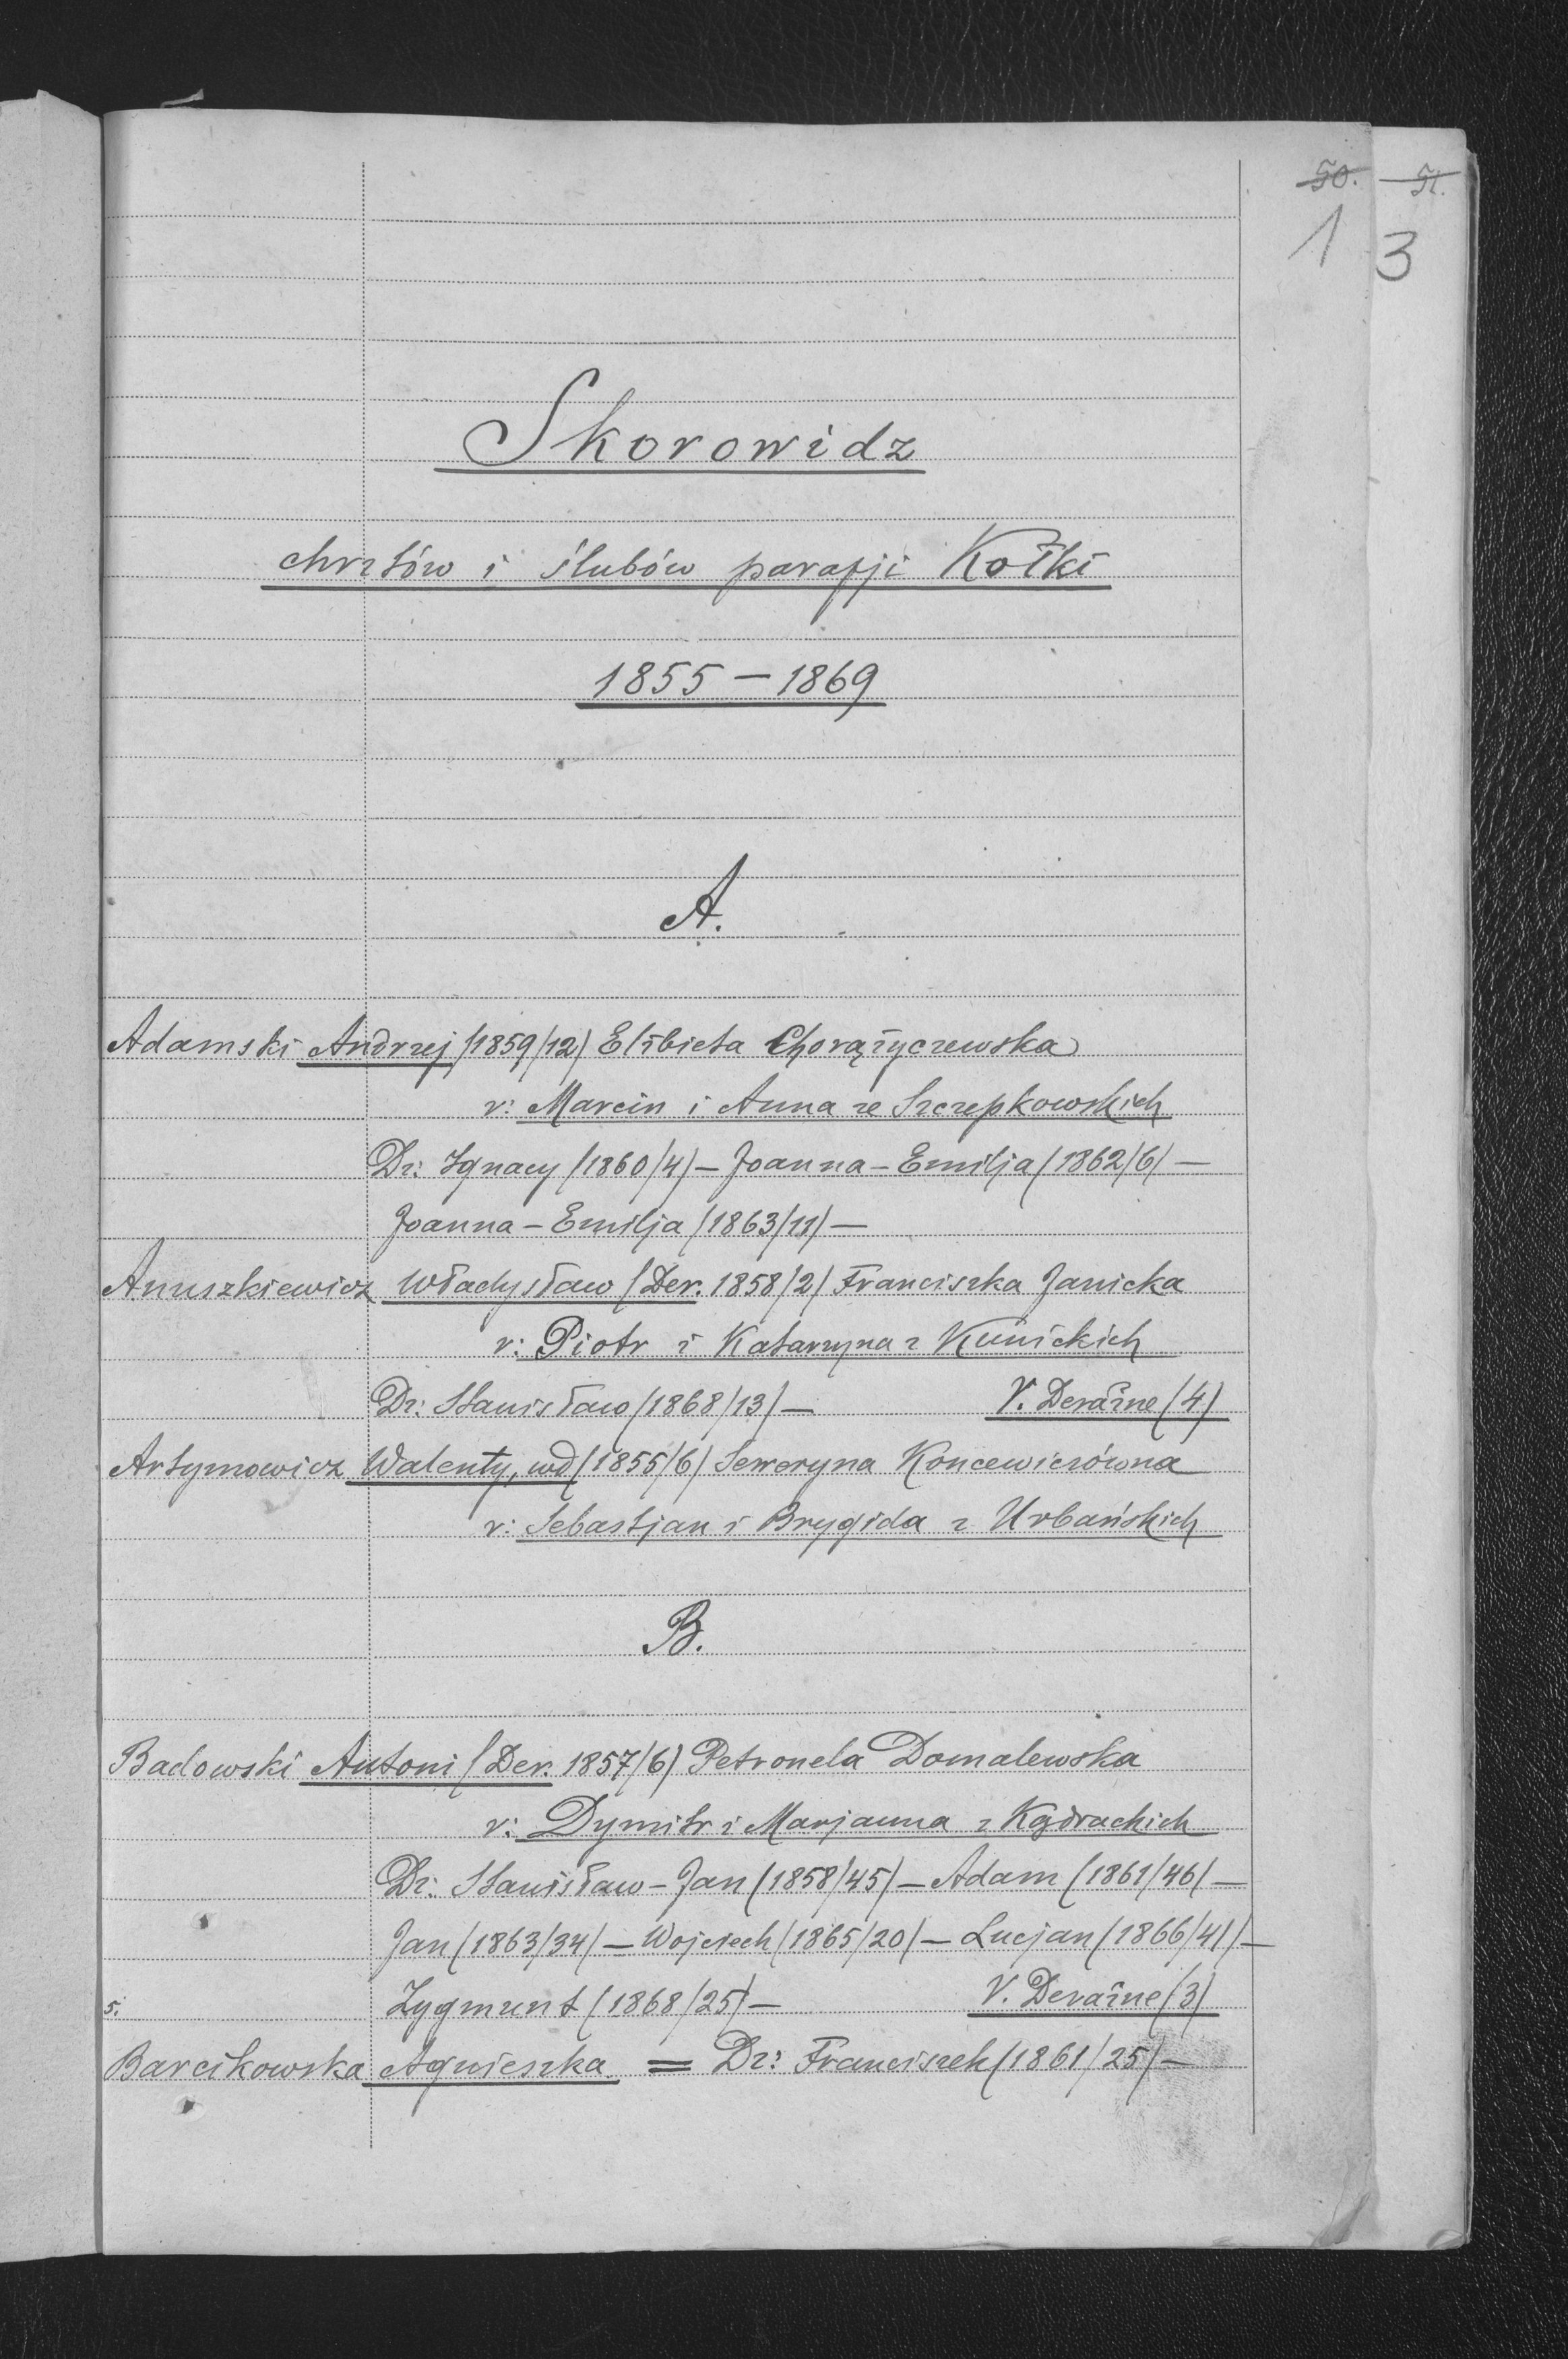 50. 51.
1 3
Skorowidz
chrztów i ślubów parafji Kołki
1855 – 1869
A.
Adamski Andrzej (1859/12) Elżbieta Chorążyczewska
r: Marcin i Anna ze Szczepkowskich
Dz: Ignacy (1860/4) – Joanna – Emilja (1862/6) –
Joanna – Emilja (1863/11) –
Anuszkiewicz Władysław (Der. 1858/2) Franciszka Janicka
r: Piotr i Katarzyna z Kunickich
Dz: Stanisław (1868/13) – V. Deraźne (4)
Artymowicz Walenty, wd (1855/6) Seweryna Koncewiczówna
r: Sebastjan i Brygida z Urbańskich
B.
Badowski Antoni (Der. 1857/6) Petronela Domalewska
r: Dymitr i Marjanna z
Dz: Stanisław – Jan (1858/45) – Adam (1861/46) –
Jan (1863/34) – Wojciech (1865/20) – Lucjan (1866/41) –
5. Zygmunt (1868/25) – V. Deraźne (3)
Barcikowska Agnieszka = Dz: Franciszek (1861/25) –